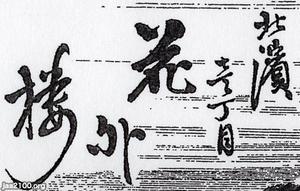 北濱
壱丁目
花外
楼
jaa2100.org